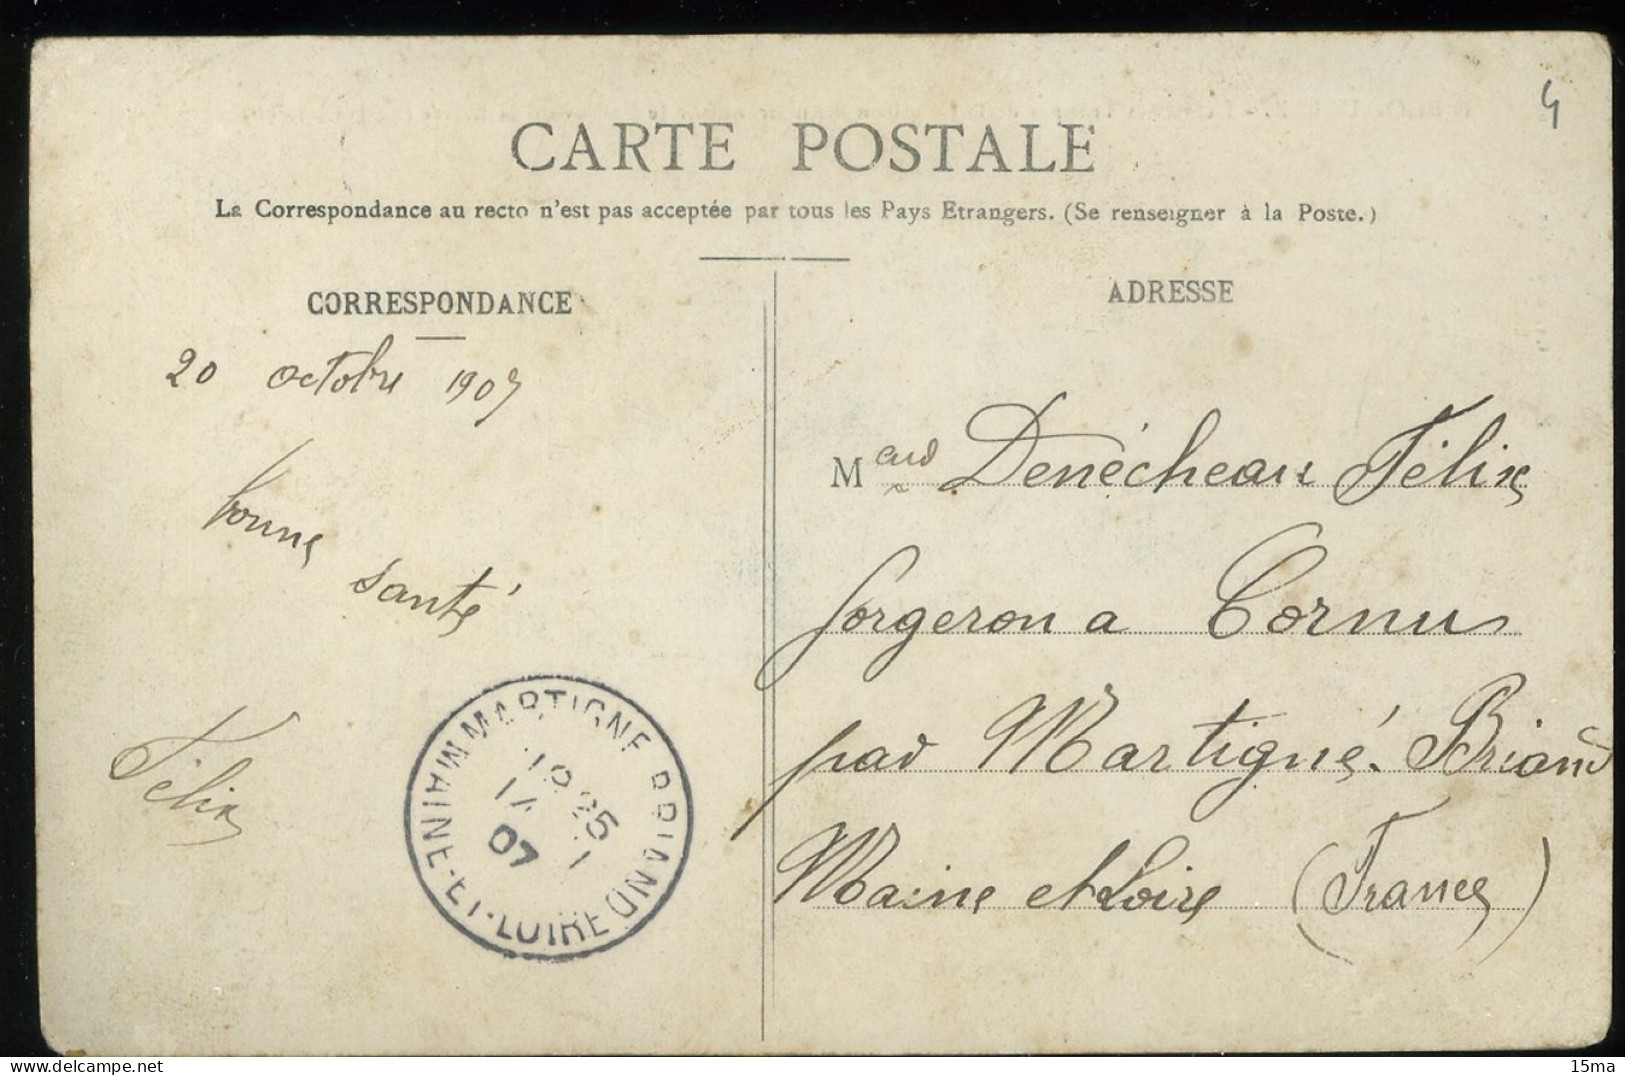 4
CARTE POSTALE
La Correspondance au recto n'est pas acceptée par tous les Pays Etrangers. (Se renseigner à la Poste.)
CORRESPONDANCE
20 octobre 1907
bonne
santé
Félix
ADRESSE
M Denécheau Félix
forgeron a Cornu
par Martigné-Briand
Maine et Loire (France)
MARTIGNE-BRIAND
07
MAINE-ET-LOIRE
15ma